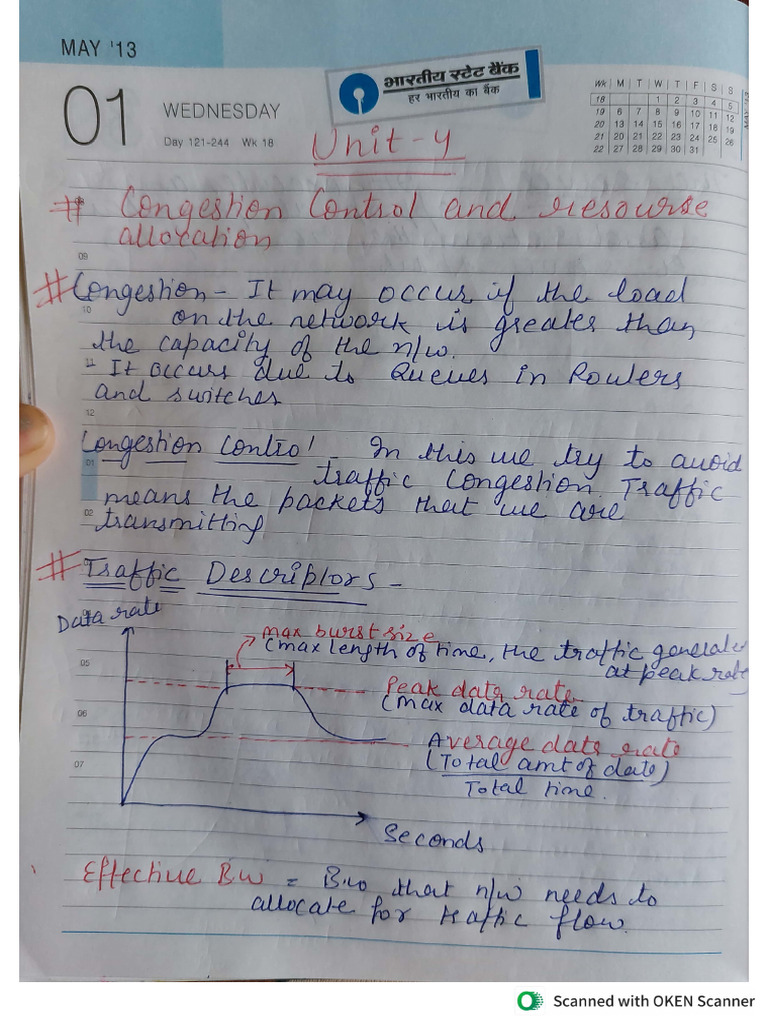 MAY '13
01
WEDNESDAY
Day 121-244 Wk 18
भारतीय स्टेट बैंक
हर भारतीय का बैंक
Wk M T W T F S S
18 1 2 3 4 5
19 6 7 8 9 10 11 12
20 13 14 15 16 17 18 19
21 20 21 22 23 24 25 26
22 27 28 29 30 31
MAY '13
Unit-4
# Congestion Control and resourse
allocation
09
# Congestion - It may occur if the load
10
on the network is greater than
the capacity of the n/w.
11
It occurs due to Queues in Routers
and switches
12
Congestion Control - In this we try to avoid
01
traffic Congestion. Traffic
means the packets that we are
02
transmitting
# Traffic Descriptors -
Data rate
max burst size
(max length of time, the traffic generate
at peak rate
05
Peak data rate
(max data rate of traffic)
06
Average data rate
(Total amt of date)
07
Total time.
Seconds
Effective Bw = Bw that n/w needs to
allocate for traffic flow.
Scanned with OKEN Scanner